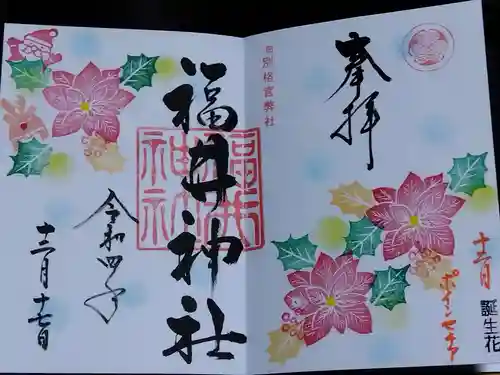 十二月
誕生花
ポインセチア
奉拝
旧別格官弊社
福井神社
福井
神社
令和四年
十二月十七日